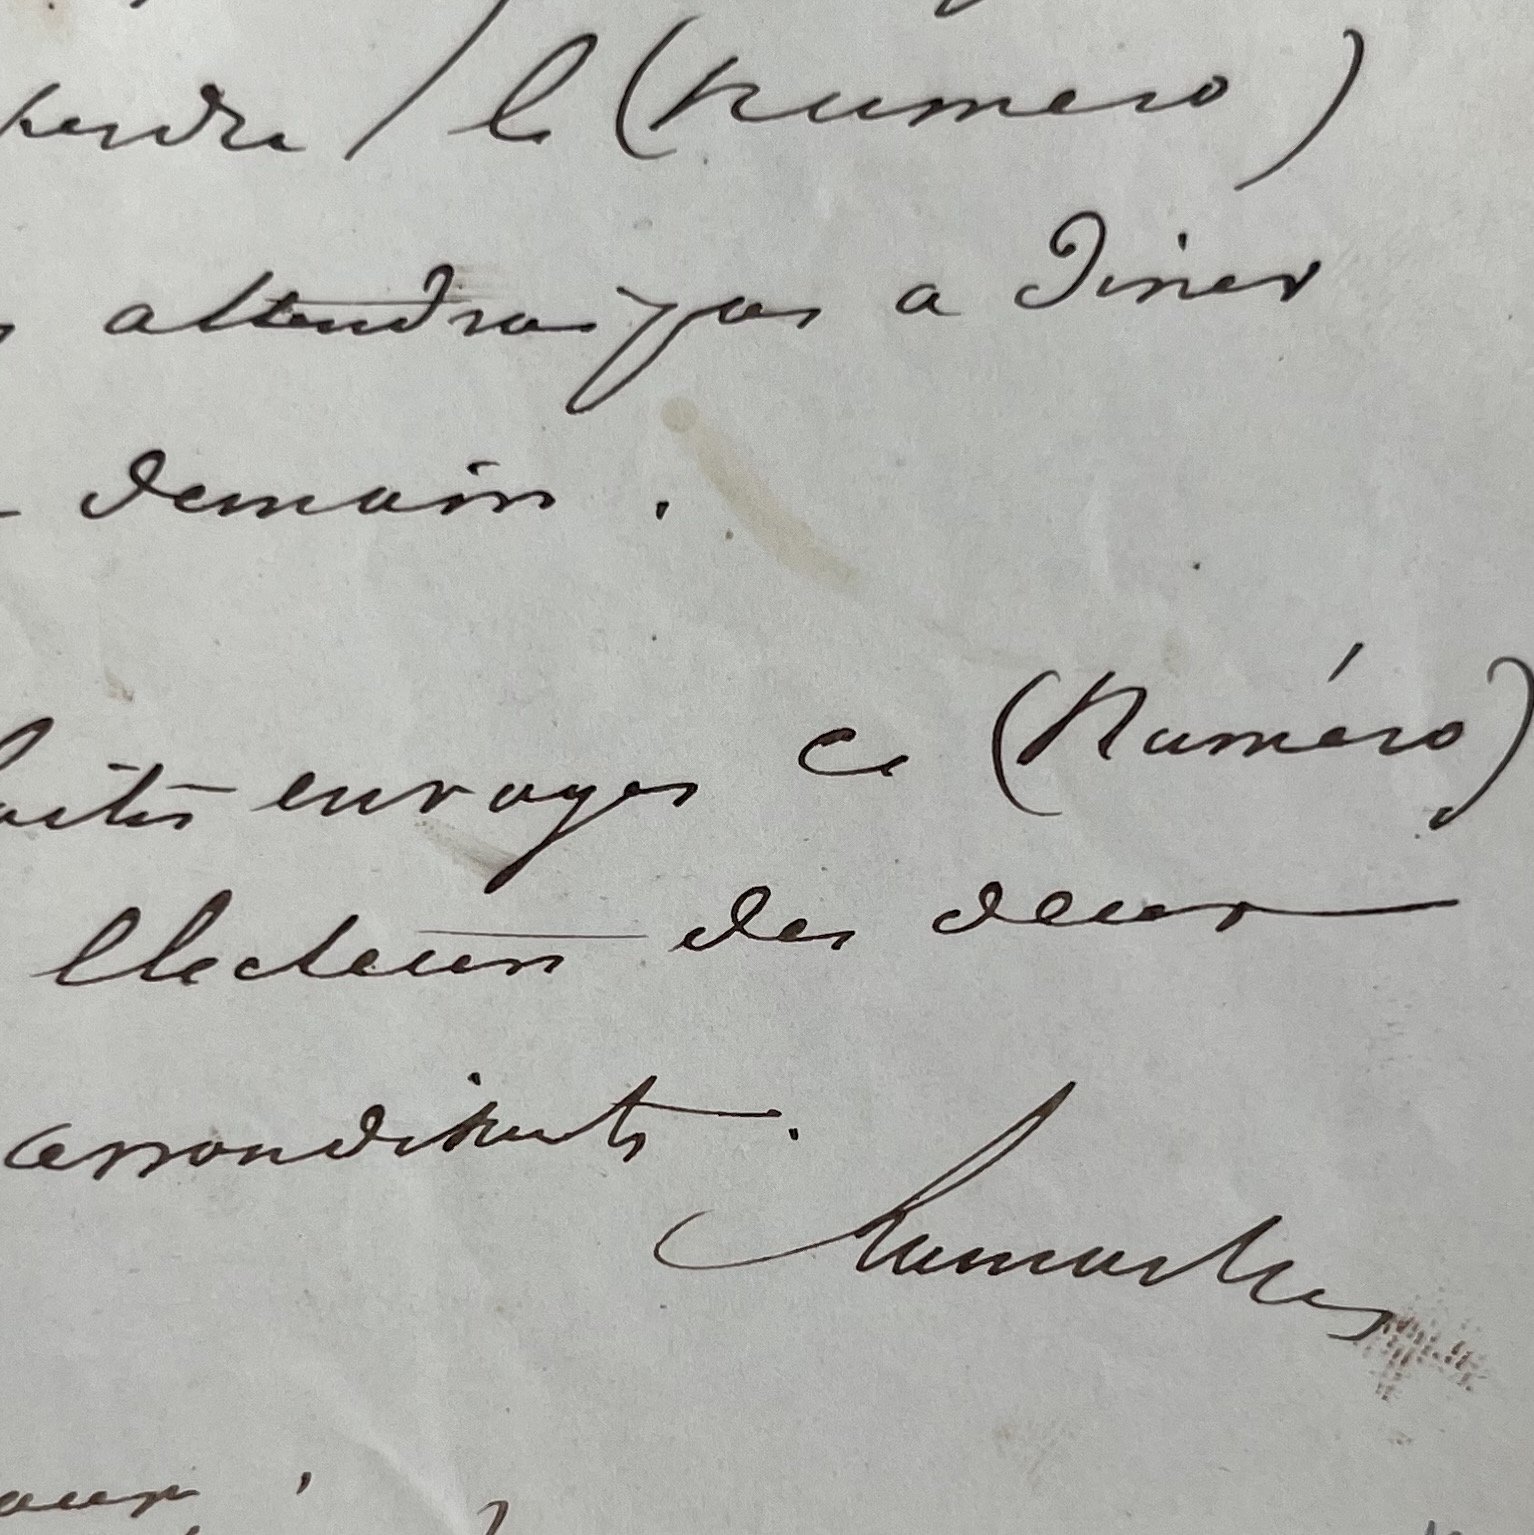 perdre / le (Numero)
attendrai pas a Diner
demain .
faites envoyer ce (Numéro)
Electeurs des deux
arrondissmts .